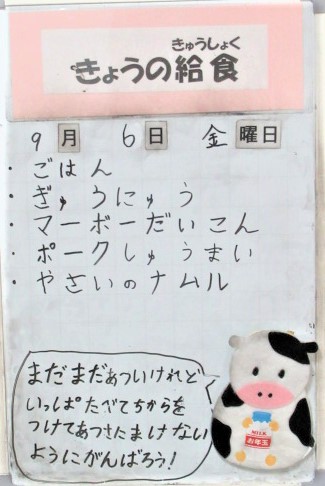 きゅうしょく
きょうの給食
9月 6日 金曜日
・ごはん
・ぎゅうにゅう
・マーボーだいこん
・ポークしゅうまい
・やさいのナムル
まだまだあついけれど
いっぱいたべてちからを
つけてあつさにまけない
ようにがんばろう!
MILK
お年玉